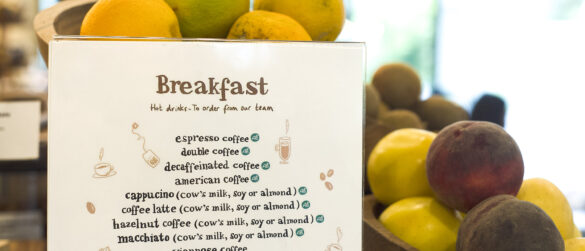 Breakfast
Hot drinks - To order from our team
espresso coffee
double coffee
decaffeinated coffee
american coffee
cappucino (cow's milk, soy or almond)
coffee latte (cow's milk, soy or almond)
hazelnut coffee (cow's milk, soy or almond)
macchiato (cow's milk, soy or almond)
coffee